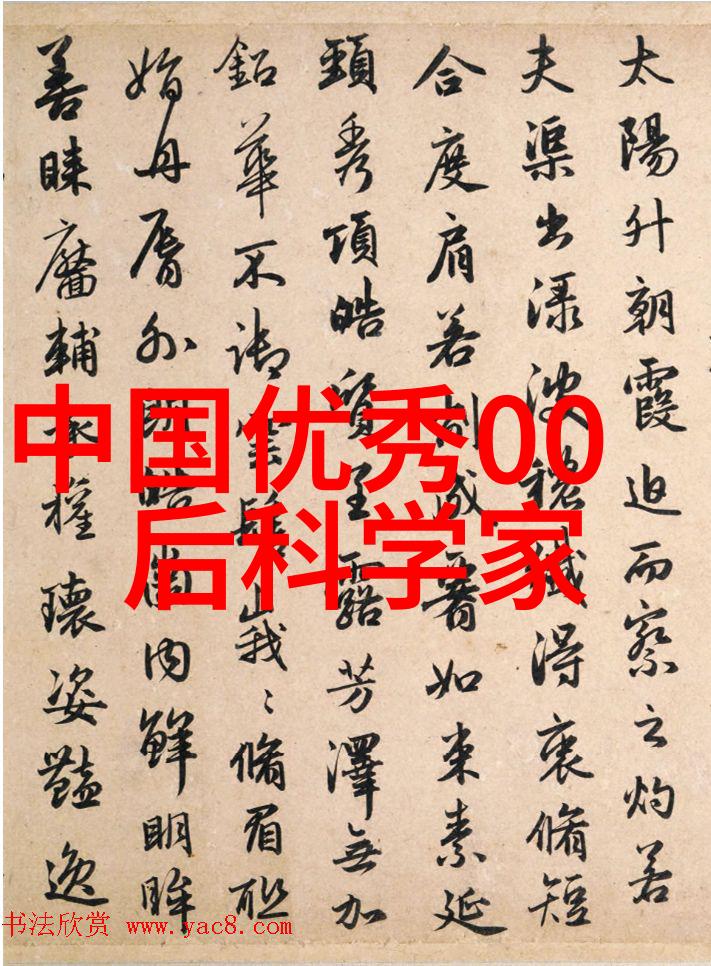 太陽升朝霞迫而察之灼若
夫渠出渌波穠纖得衷脩短
合度肩若削成如束素延
頸秀項皓質呈露芳澤無加
鉛華不御雲髻峩〻脩眉聯
娟丹脣外朗皓齒内鮮明眸
善睞靨輔承權瓌姿豔逸
中国优秀00
后科学家
书法欣赏 www.yac8.com